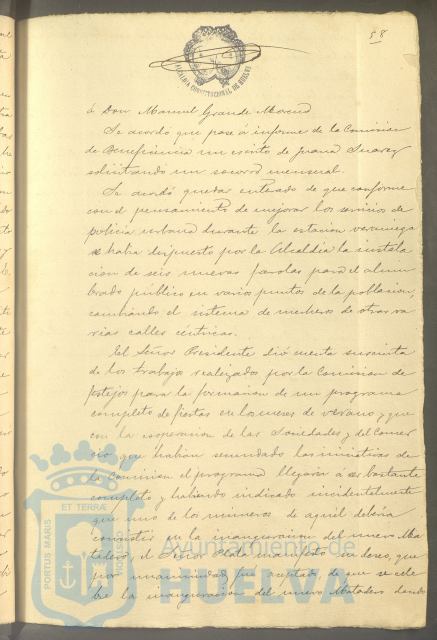 58
ALCALDIA CONSTITUCIONAL DE HUELVA
á Don Manuel Grande Moreno
Se acordó que pase á informe de la Comision
de Beneficencia un escrito de Juana Suarez
solicitando un socorro mensual.
Se acordó quedar enterado de que conforme
con el pensamiento de mejorar los servicios de
policía urbana durante la estacion veraniega
se habia dispuesto por la Alcaldía la instala
cion de seis nuevas farolas para el alum
brado público en varios puntos de la poblacion,
cambiando el sistema de mecheros de otras va
rias calles céntricas.
El Señor Presidente dió cuenta sucinta
de los trabajos realizados por la Comision de
festejos para la formacion de un programa
completo de fiestas en los meses de verano y que
con la cooperacion de las Sociedades y del Comer
cio que habian secundado las iniciativas de
la Comision el programa llegaria á ser bastante
completo y habiendo indicado incidentalmente
que uno de los números de aquel deberia
consistir en la inauguracion del nuevo Ma
tadero, el Señor manifestó su deseo, que
por unanimidad fué aceptado, de que se cele
bre la inauguracion del nuevo Matadero dando
PORTUS MARIS ET TERRAE CUSTODIA
Ayuntamiento de
HUELVA